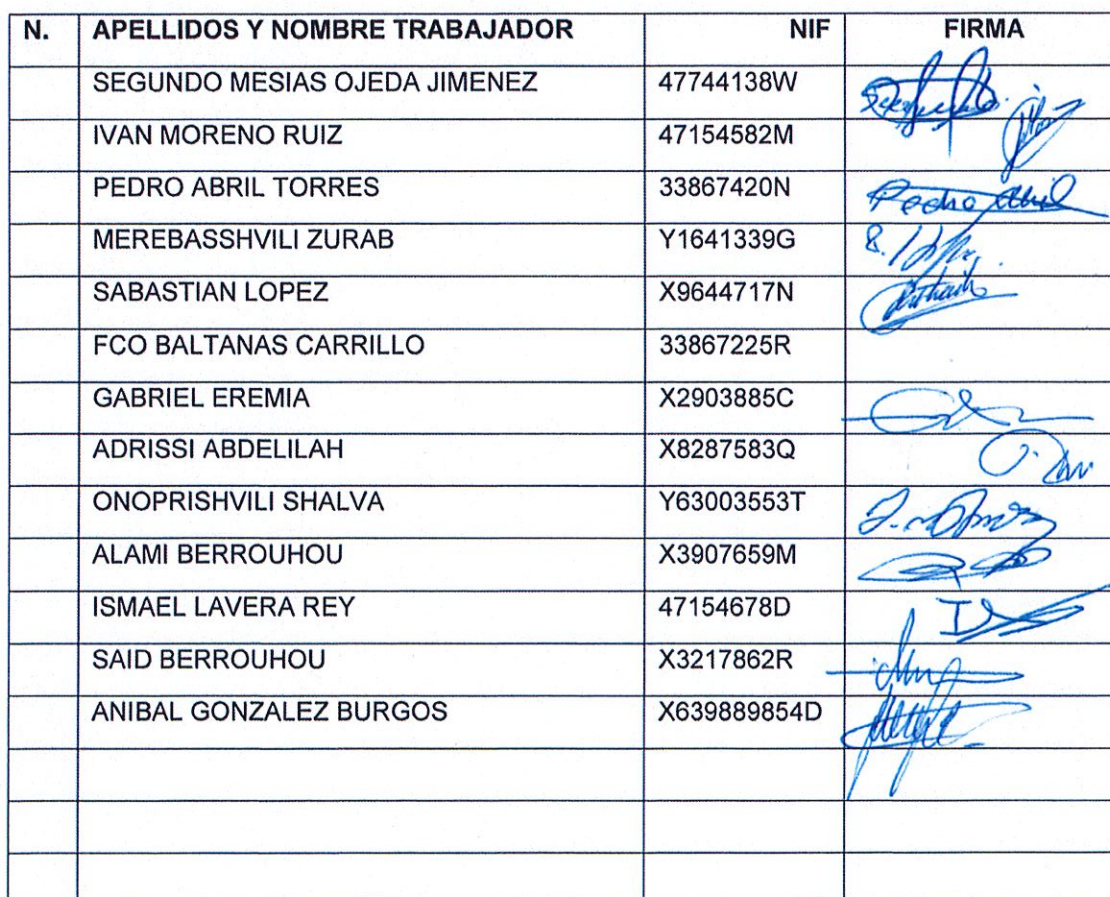 N. APELLIDOS Y NOMBRE TRABAJADOR NIF FIRMA
SEGUNDO MESIAS OJEDA JIMENEZ 47744138W
IVAN MORENO RUIZ 47154582M
PEDRO ABRIL TORRES 33867420N Pedro Abril
MEREBASSHVILI ZURAB Y1641339G
SABASTIAN LOPEZ X9644717N
FCO BALTANAS CARRILLO 33867225R
GABRIEL EREMIA X2903885C
ADRISSI ABDELILAH X8287583Q
ONOPRISHVILI SHALVA Y63003553T
ALAMI BERROUHOU X3907659M
ISMAEL LAVERA REY 47154678D
SAID BERROUHOU X3217862R
ANIBAL GONZALEZ BURGOS X639889854D